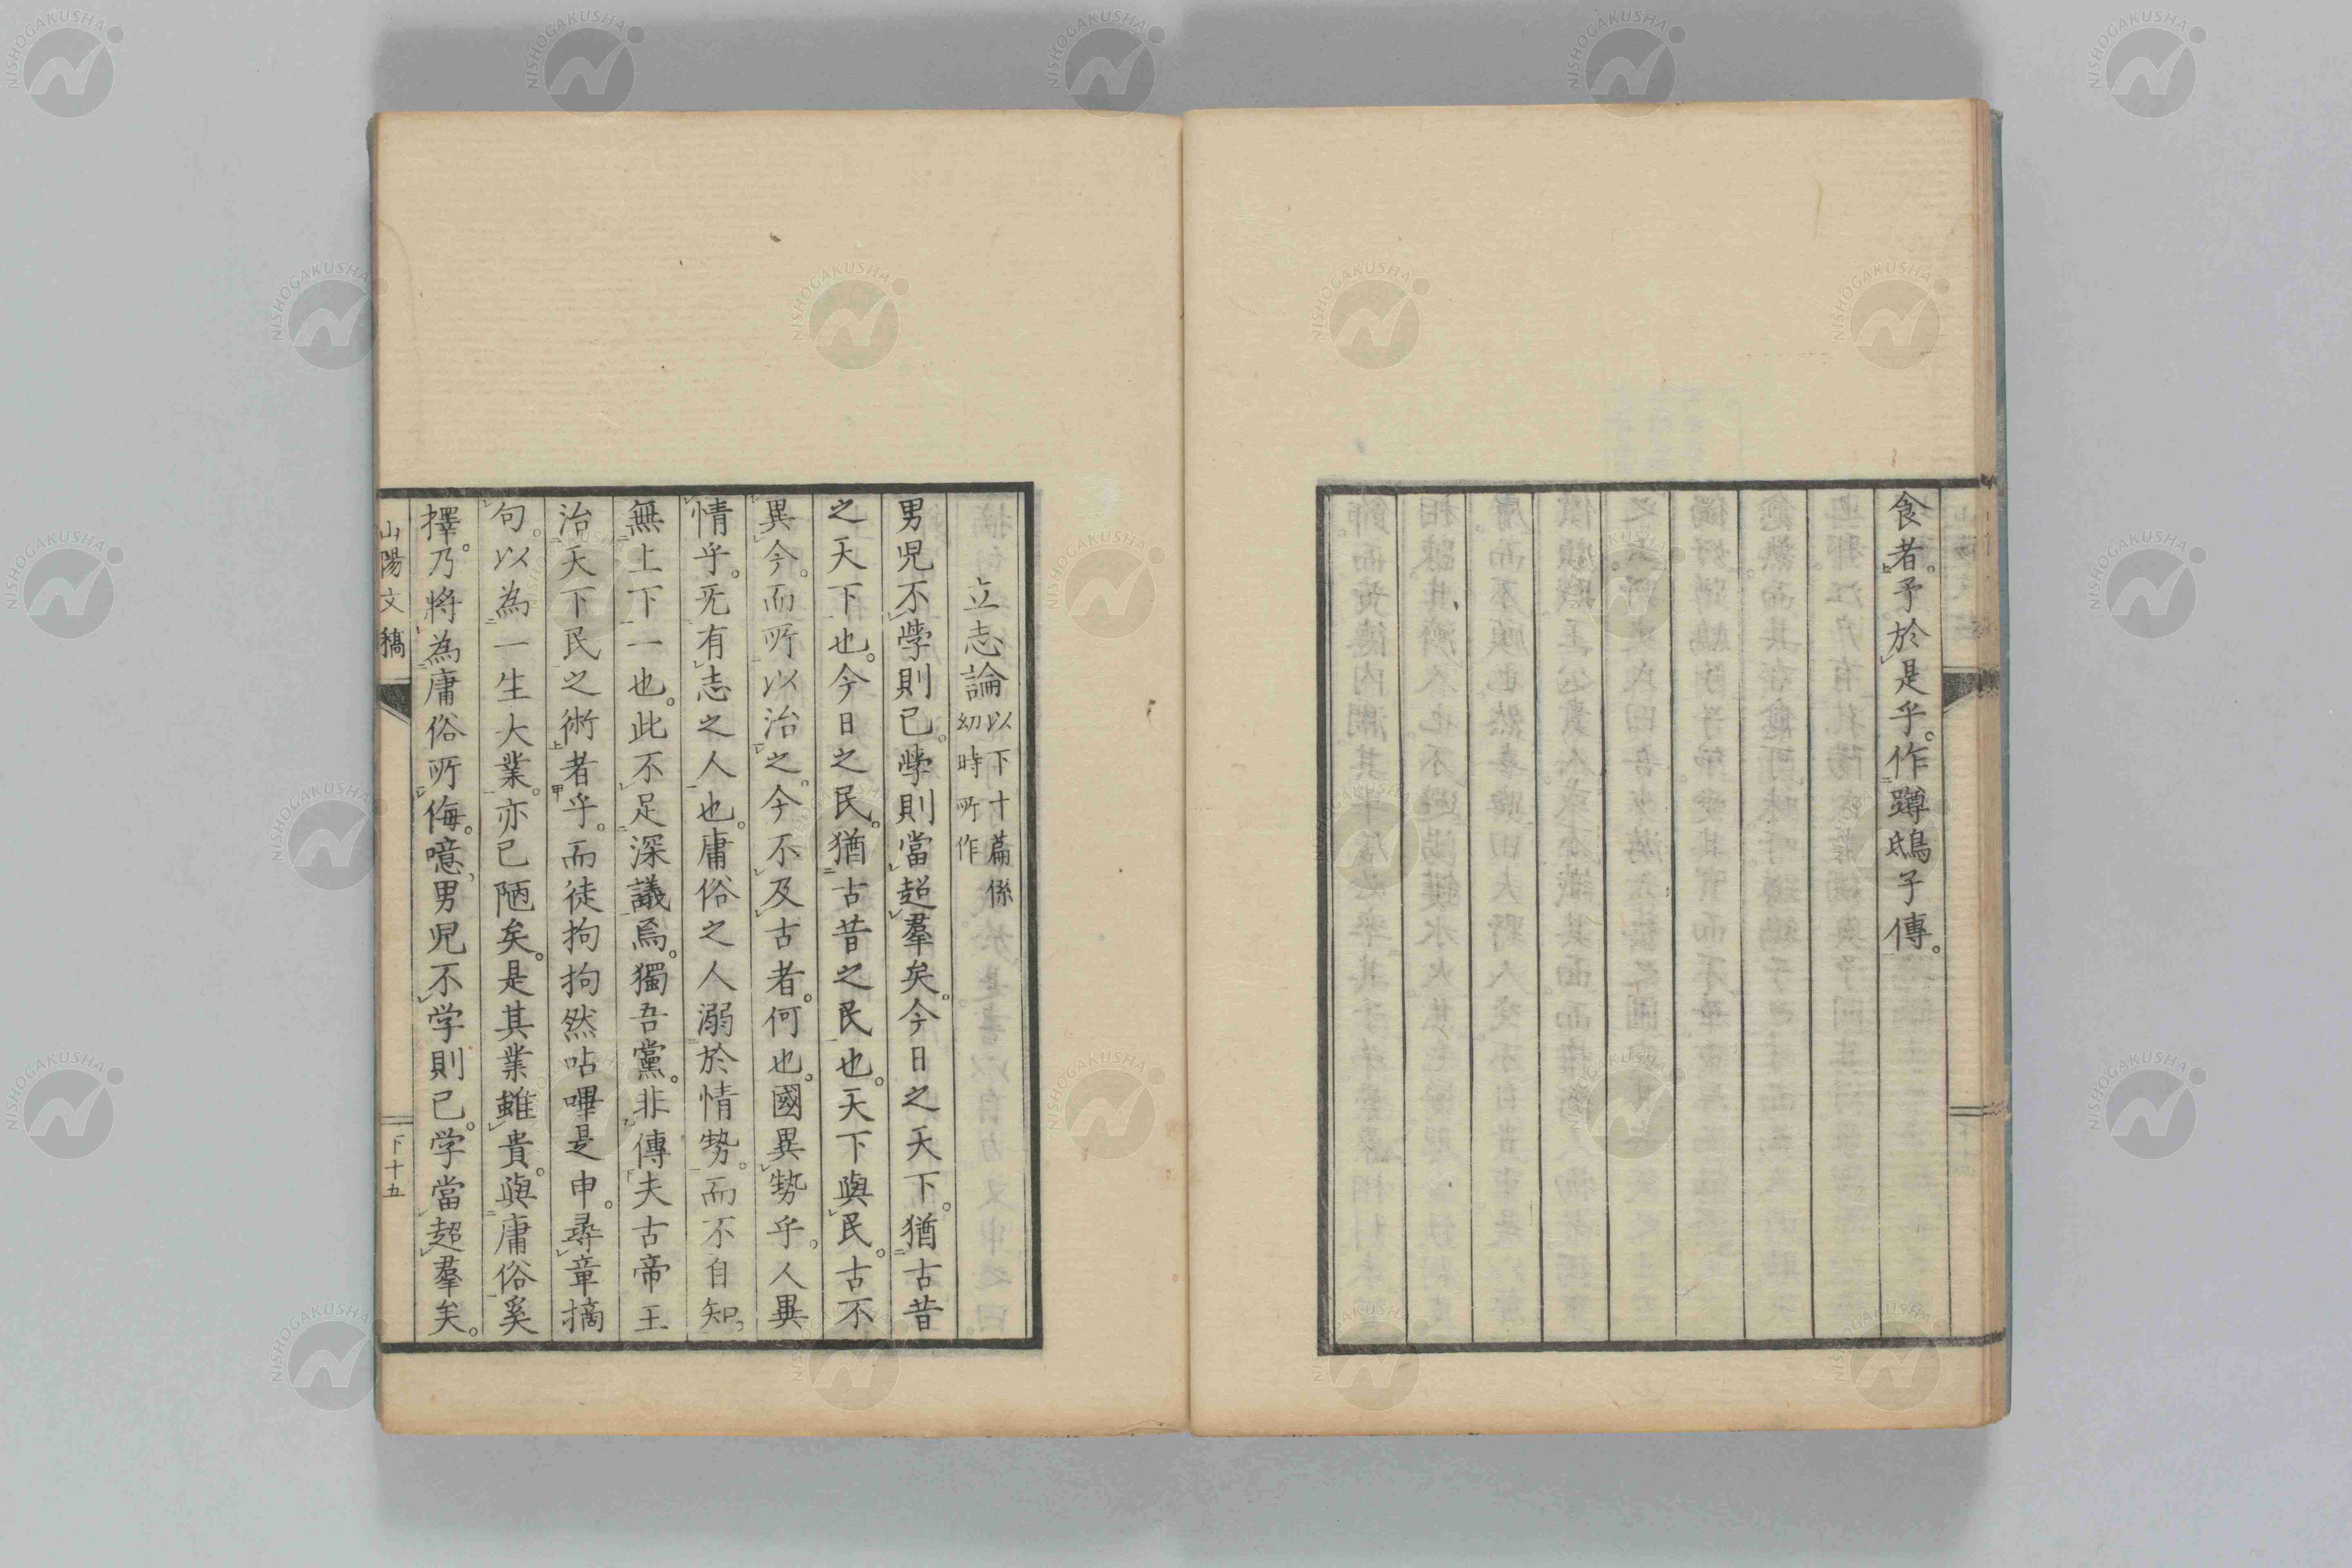 食者。予於是乎。作蹲鴟子傳。
立志論 以下十篇係幼時所作
男児不學則已。學則當超羣矣。今日之天下。猶古昔
之天下也。今日之民。猶古昔之民也。天下與民。古不
異今。而所以治之。今不及古者。何也。國異勢乎。人異
情乎。无有志之人也。庸俗之人溺於情勢。而不自知、
無上下一也。此不足深議焉。獨吾黨。非傳夫古帝王
治天下民之術者乎。而徒拘拘然呫嗶是申。尋章摘
句。以為一生大業。亦已陋矣。是其業雖貴。與庸俗奚
擇。乃將為庸俗所侮。噫、男児不学則已。学當超羣矣。
山陽文稿
下十五
NISHOGAKUSHA